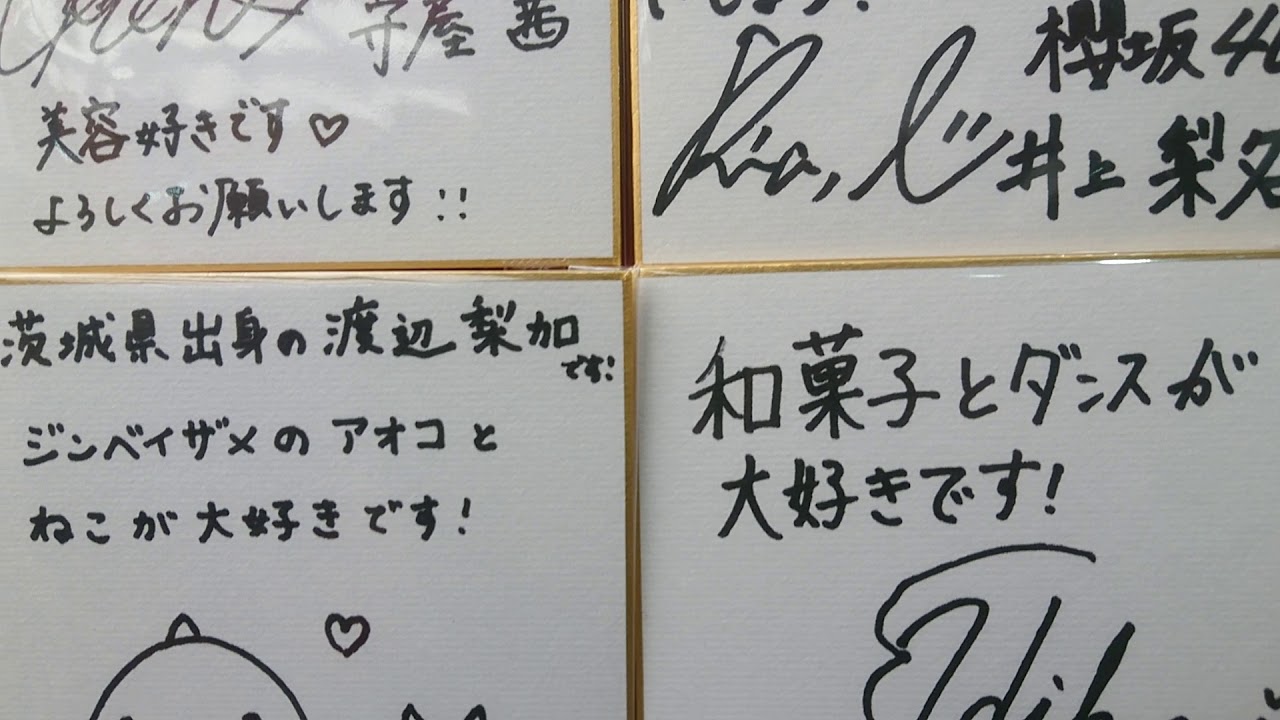 守屋 茜
美容好きです♡
よろしくお願いします!!
櫻坂46
井上 梨名
茨城県出身の渡辺梨加です!
ジンベイザメのアオコと
ねこが大好きです!
和菓子とダンスが
大好きです!